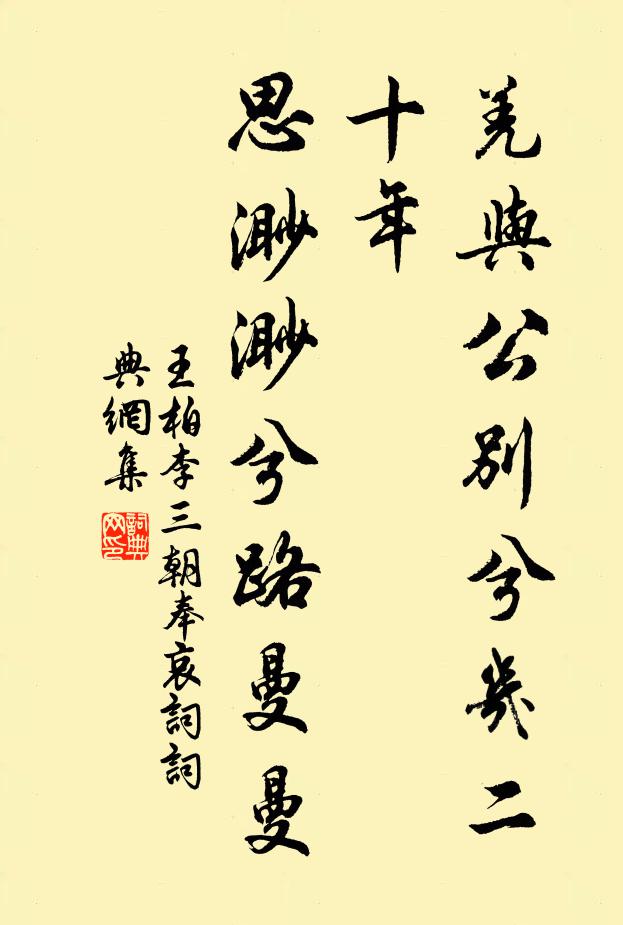 羌與公別兮幾二
十年
思渺渺兮路曼曼
王柏李三朝奉哀詞詞
典網集
詞典
网印